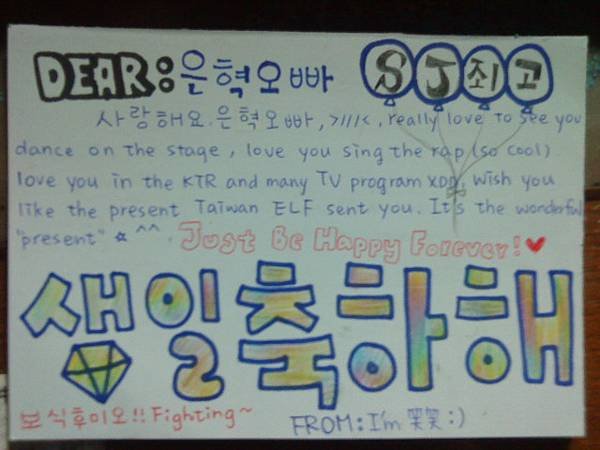 DEAR: 은혁오빠 SJ최고
사랑해요. 은혁오빠, >///<, really love to see you
dance on the stage, love you sing the rap (so cool)
love you in the KTR and many TV program XDD. Wish you
like the present Taiwan ELF sent you. It's the wonderful
"present" ☆ ^^. Just Be Happy Forever! ♥
생일축하해
보식후이오!! Fighting~
FROM: I'm 笑笑 :)